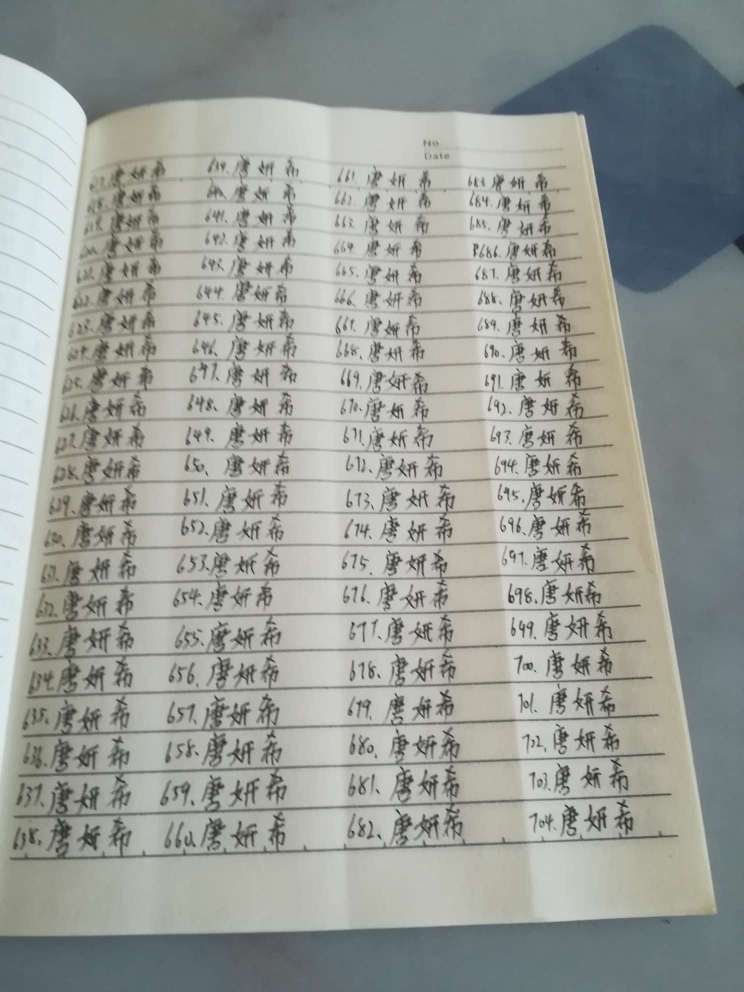 617.唐妍希
618.唐妍希
619.唐妍希
620.唐妍希
621.唐妍希
622.唐妍希
623.唐妍希
624.唐妍希
625.唐妍希
626.唐妍希
627.唐妍希
628.唐妍希
629.唐妍希
630.唐妍希
631.唐妍希
632.唐妍希
633.唐妍希
634.唐妍希
635.唐妍希
636.唐妍希
637.唐妍希
638.唐妍希
639.唐妍希
640.唐妍希
641.唐妍希
642.唐妍希
643.唐妍希
644.唐妍希
645.唐妍希
646.唐妍希
647.唐妍希
648.唐妍希
649.唐妍希
650.唐妍希
651.唐妍希
652.唐妍希
653.唐妍希
654.唐妍希
655.唐妍希
656.唐妍希
657.唐妍希
658.唐妍希
659.唐妍希
660.唐妍希
No
Date
661.唐妍希
662.唐妍希
663.唐妍希
664.唐妍希
665.唐妍希
666.唐妍希
667.唐妍希
668.唐妍希
669.唐妍希
670.唐妍希
671.唐妍希
672.唐妍希
673.唐妍希
674.唐妍希
675.唐妍希
676.唐妍希
677.唐妍希
678.唐妍希
679.唐妍希
680.唐妍希
681.唐妍希
682.唐妍希
683.唐妍希
684.唐妍希
685.唐妍希
686.唐妍希
687.唐妍希
688.唐妍希
689.唐妍希
690.唐妍希
691.唐妍希
692.唐妍希
693.唐妍希
694.唐妍希
695.唐妍希
696.唐妍希
697.唐妍希
698.唐妍希
699.唐妍希
700.唐妍希
701.唐妍希
702.唐妍希
703.唐妍希
704.唐妍希